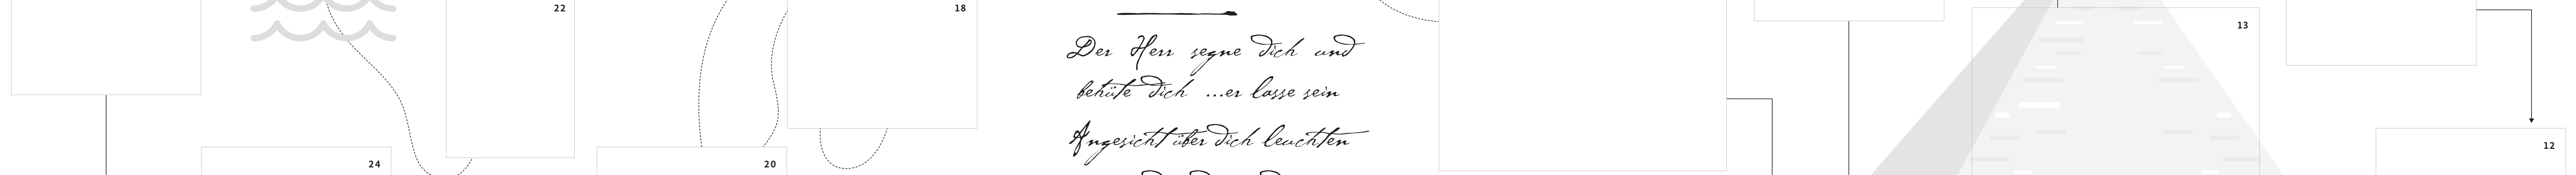 22
18
13
Der Herr segne dich und
behüte dich ...er lasse sein
Angesicht über dich leuchten
12
24
20